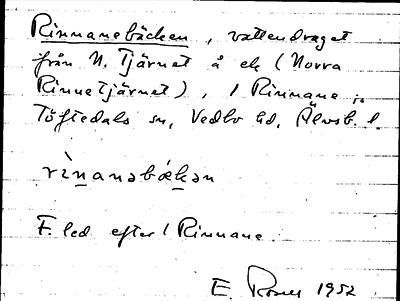 Rinnanebäcken, vattendraget
från N. Tjärnet å ek (Norra
Rinnetjärnet), / Rinnane i
Töftedals sn, Vedbo hd, Älvsb. l.
rìnanəbækən
F. led efter / Rinnane.
E. 1952